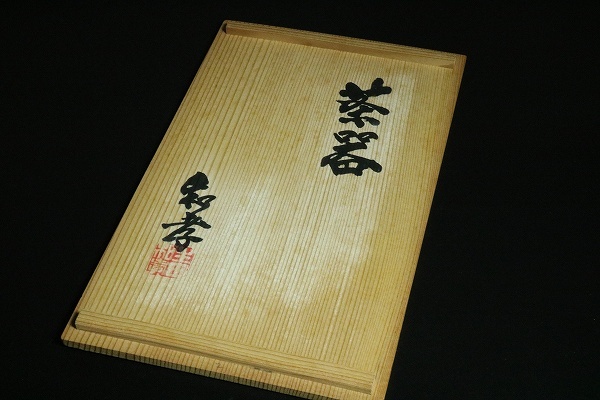 茶器
和孝